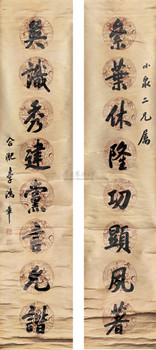 葉休隆功顯夙著
小泉二兄屬
英識秀建黨言允諧
合肥李鴻章